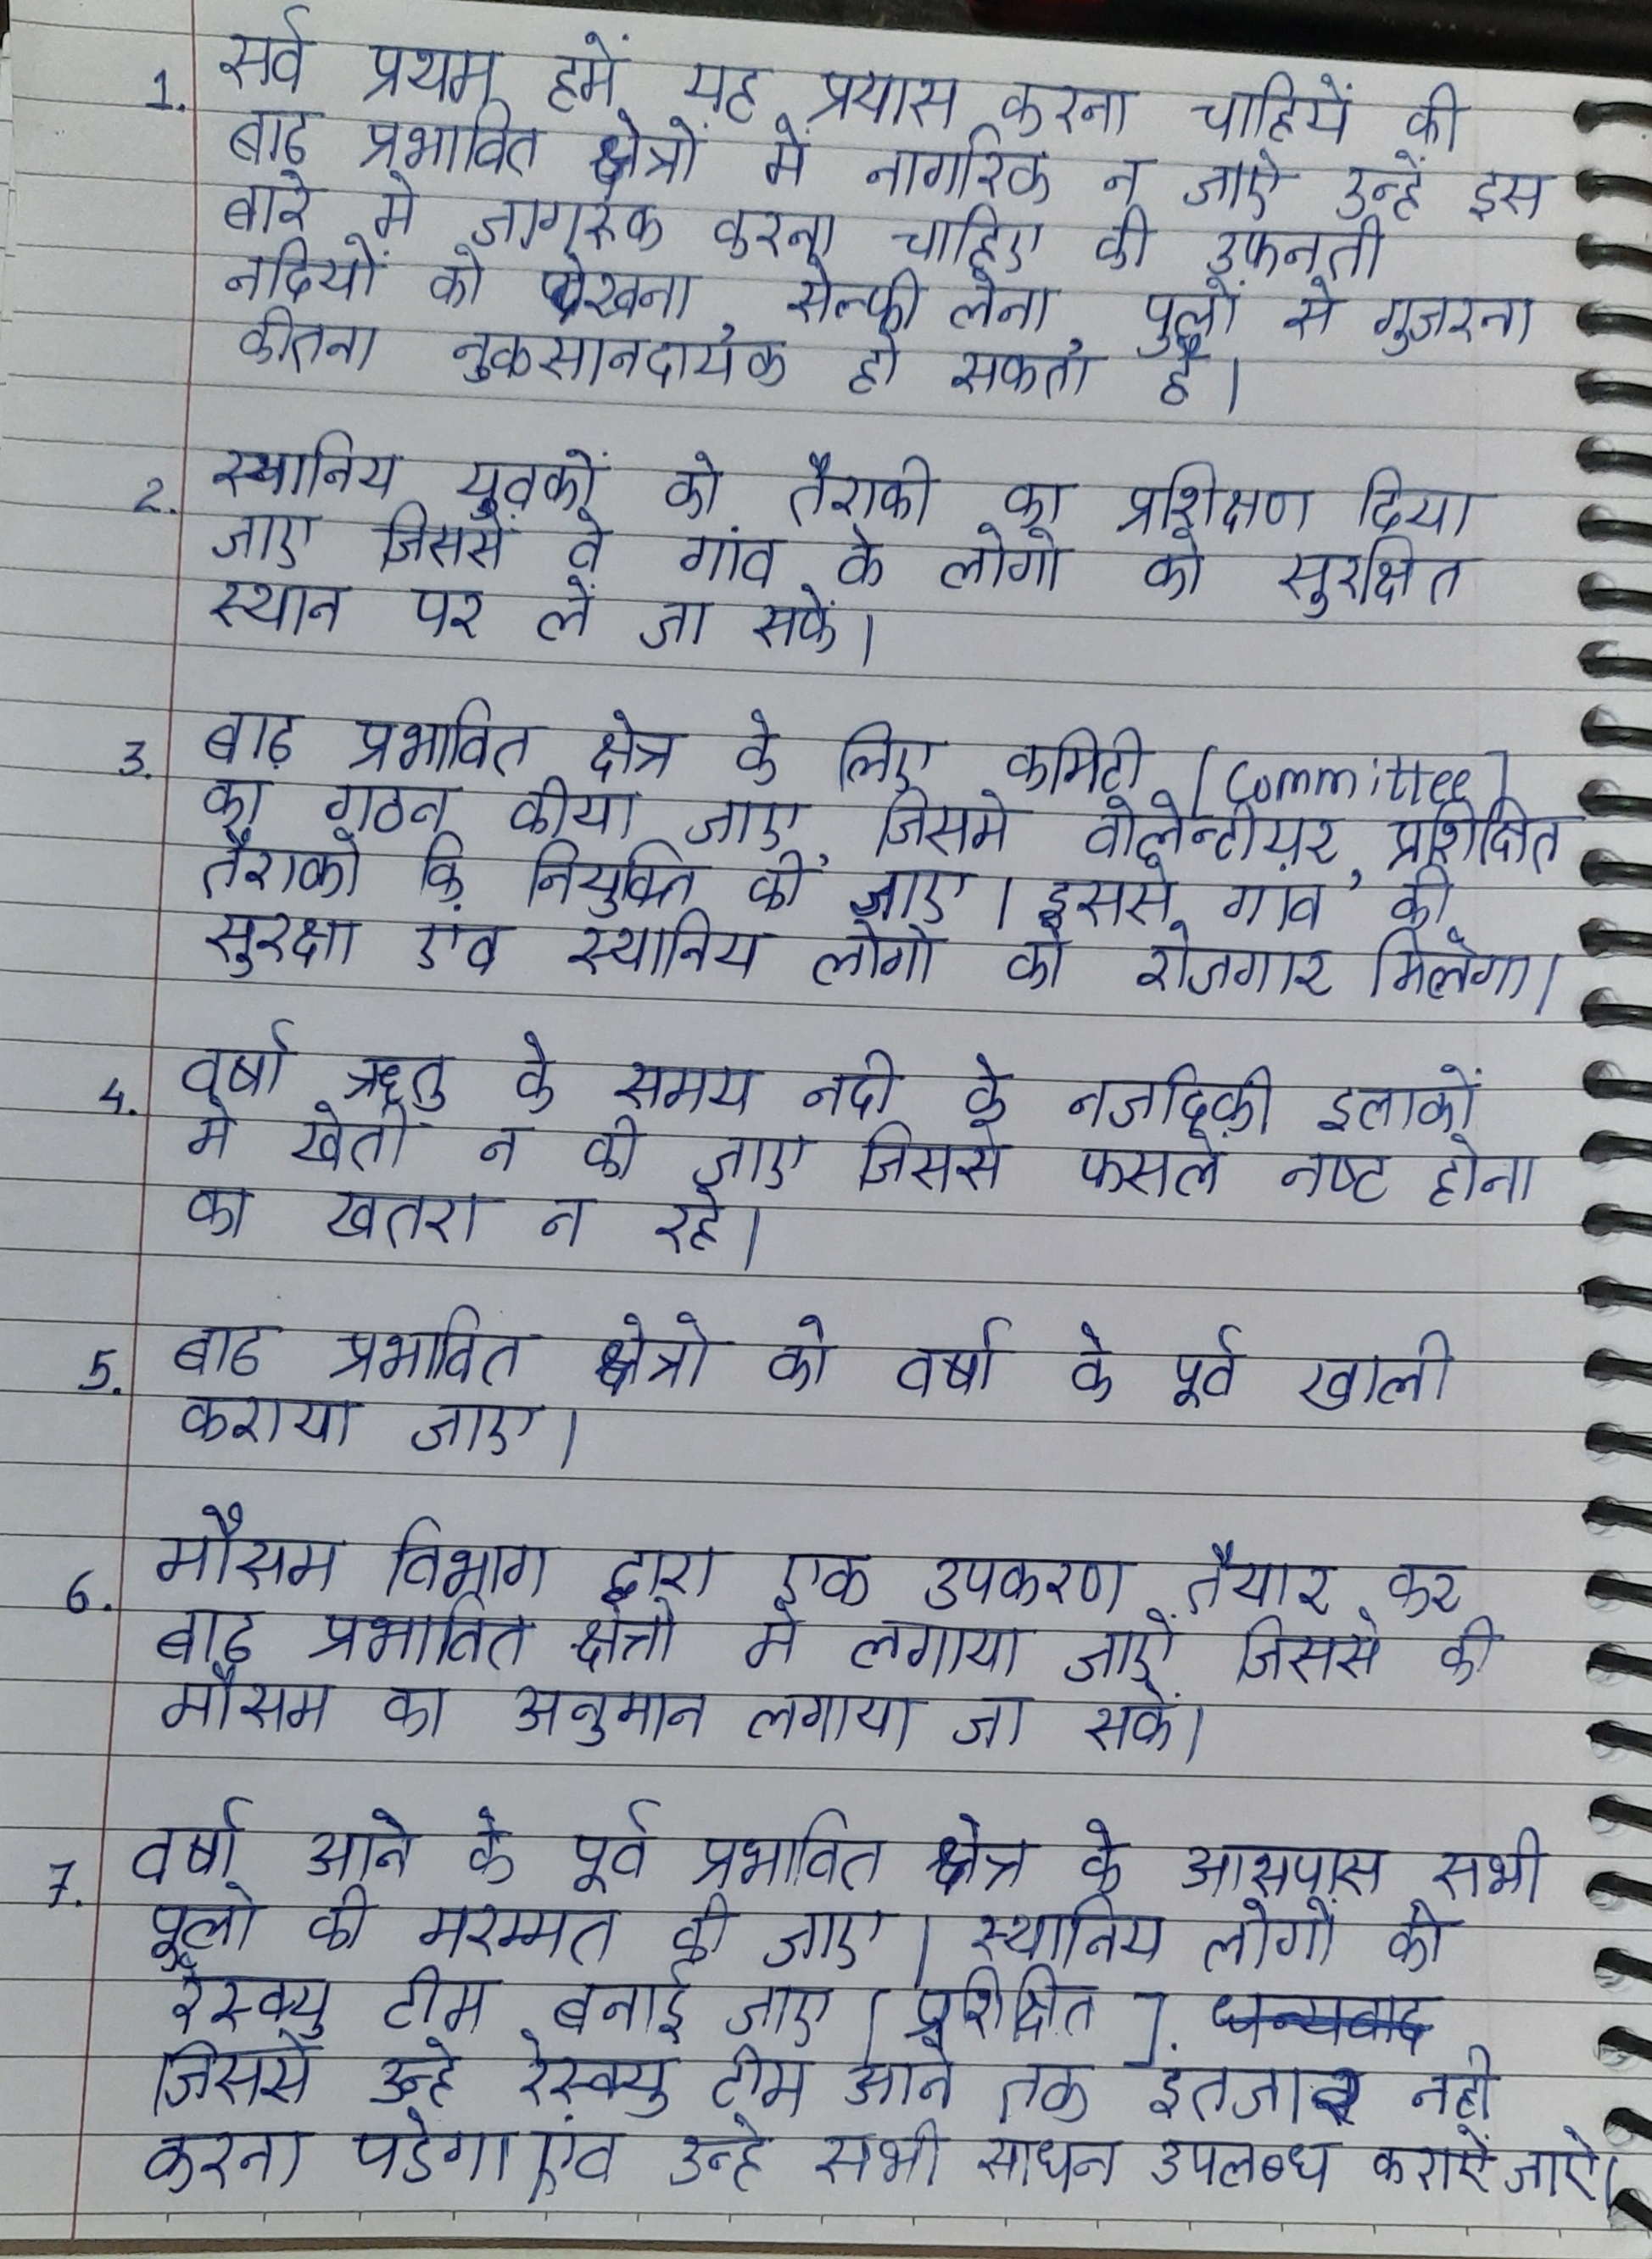 1. सर्व प्रथम हमें यह प्रयास करना चाहियें की
बाढ़ प्रभावित क्षेत्रों में नागरिक न जाऐ उन्हें इस
बारे मे जागरूक करना चाहिए की उफनती
नदियों को देखना, सेल्फी लेना, पुलों से गुजरना
कीतना नुकसानदायक हो सकता है।
2. स्थानिय युवकों को तैराकी का प्रशिक्षण दिया
जाए जिससे वे गांव के लोगो को सुरक्षित
स्थान पर लें जा सकें।
3. बाढ़ प्रभावित क्षेत्र के लिए कमिटी [Committee]
का गठन कीया जाए, जिसमे वोलेन्टीयर, प्रशिक्षित
तैराको कि नियुक्ति की जाए। इससे गांव की
सुरक्षा एंव स्थानिय लोगो को रोजगार मिलेगा।
4. वर्षा ऋतु के समय नदी के नजदिकी इलाकों
मे खेती न की जाए जिससे फसले नष्ट होना
का खतरा न रहे।
5. बाढ प्रभावित क्षेत्रो को वर्षा के पूर्व खाली
कराया जाए।
6. मौसम विभाग द्वारा एक उपकरण तैयार कर
बाढ़ प्रभावित क्षेत्रो मे लगाया जाऐं जिससे की
मौसम का अनुमान लगाया जा सकें।
7. वर्षा आने के पूर्व प्रभावित क्षेत्र के आसपास सभी
पूलो की मरम्मत की जाए। स्थानिय लोगों की
रेस्क्यु टीम बनाई जाए [प्रशिक्षित]. धन्यवाद
जिससे उन्हे रेस्क्यु टीम आने तक इंतजार नही
करना पडेगा एंव उन्हे सभी साधन उपलब्ध कराऐं जाऐ।